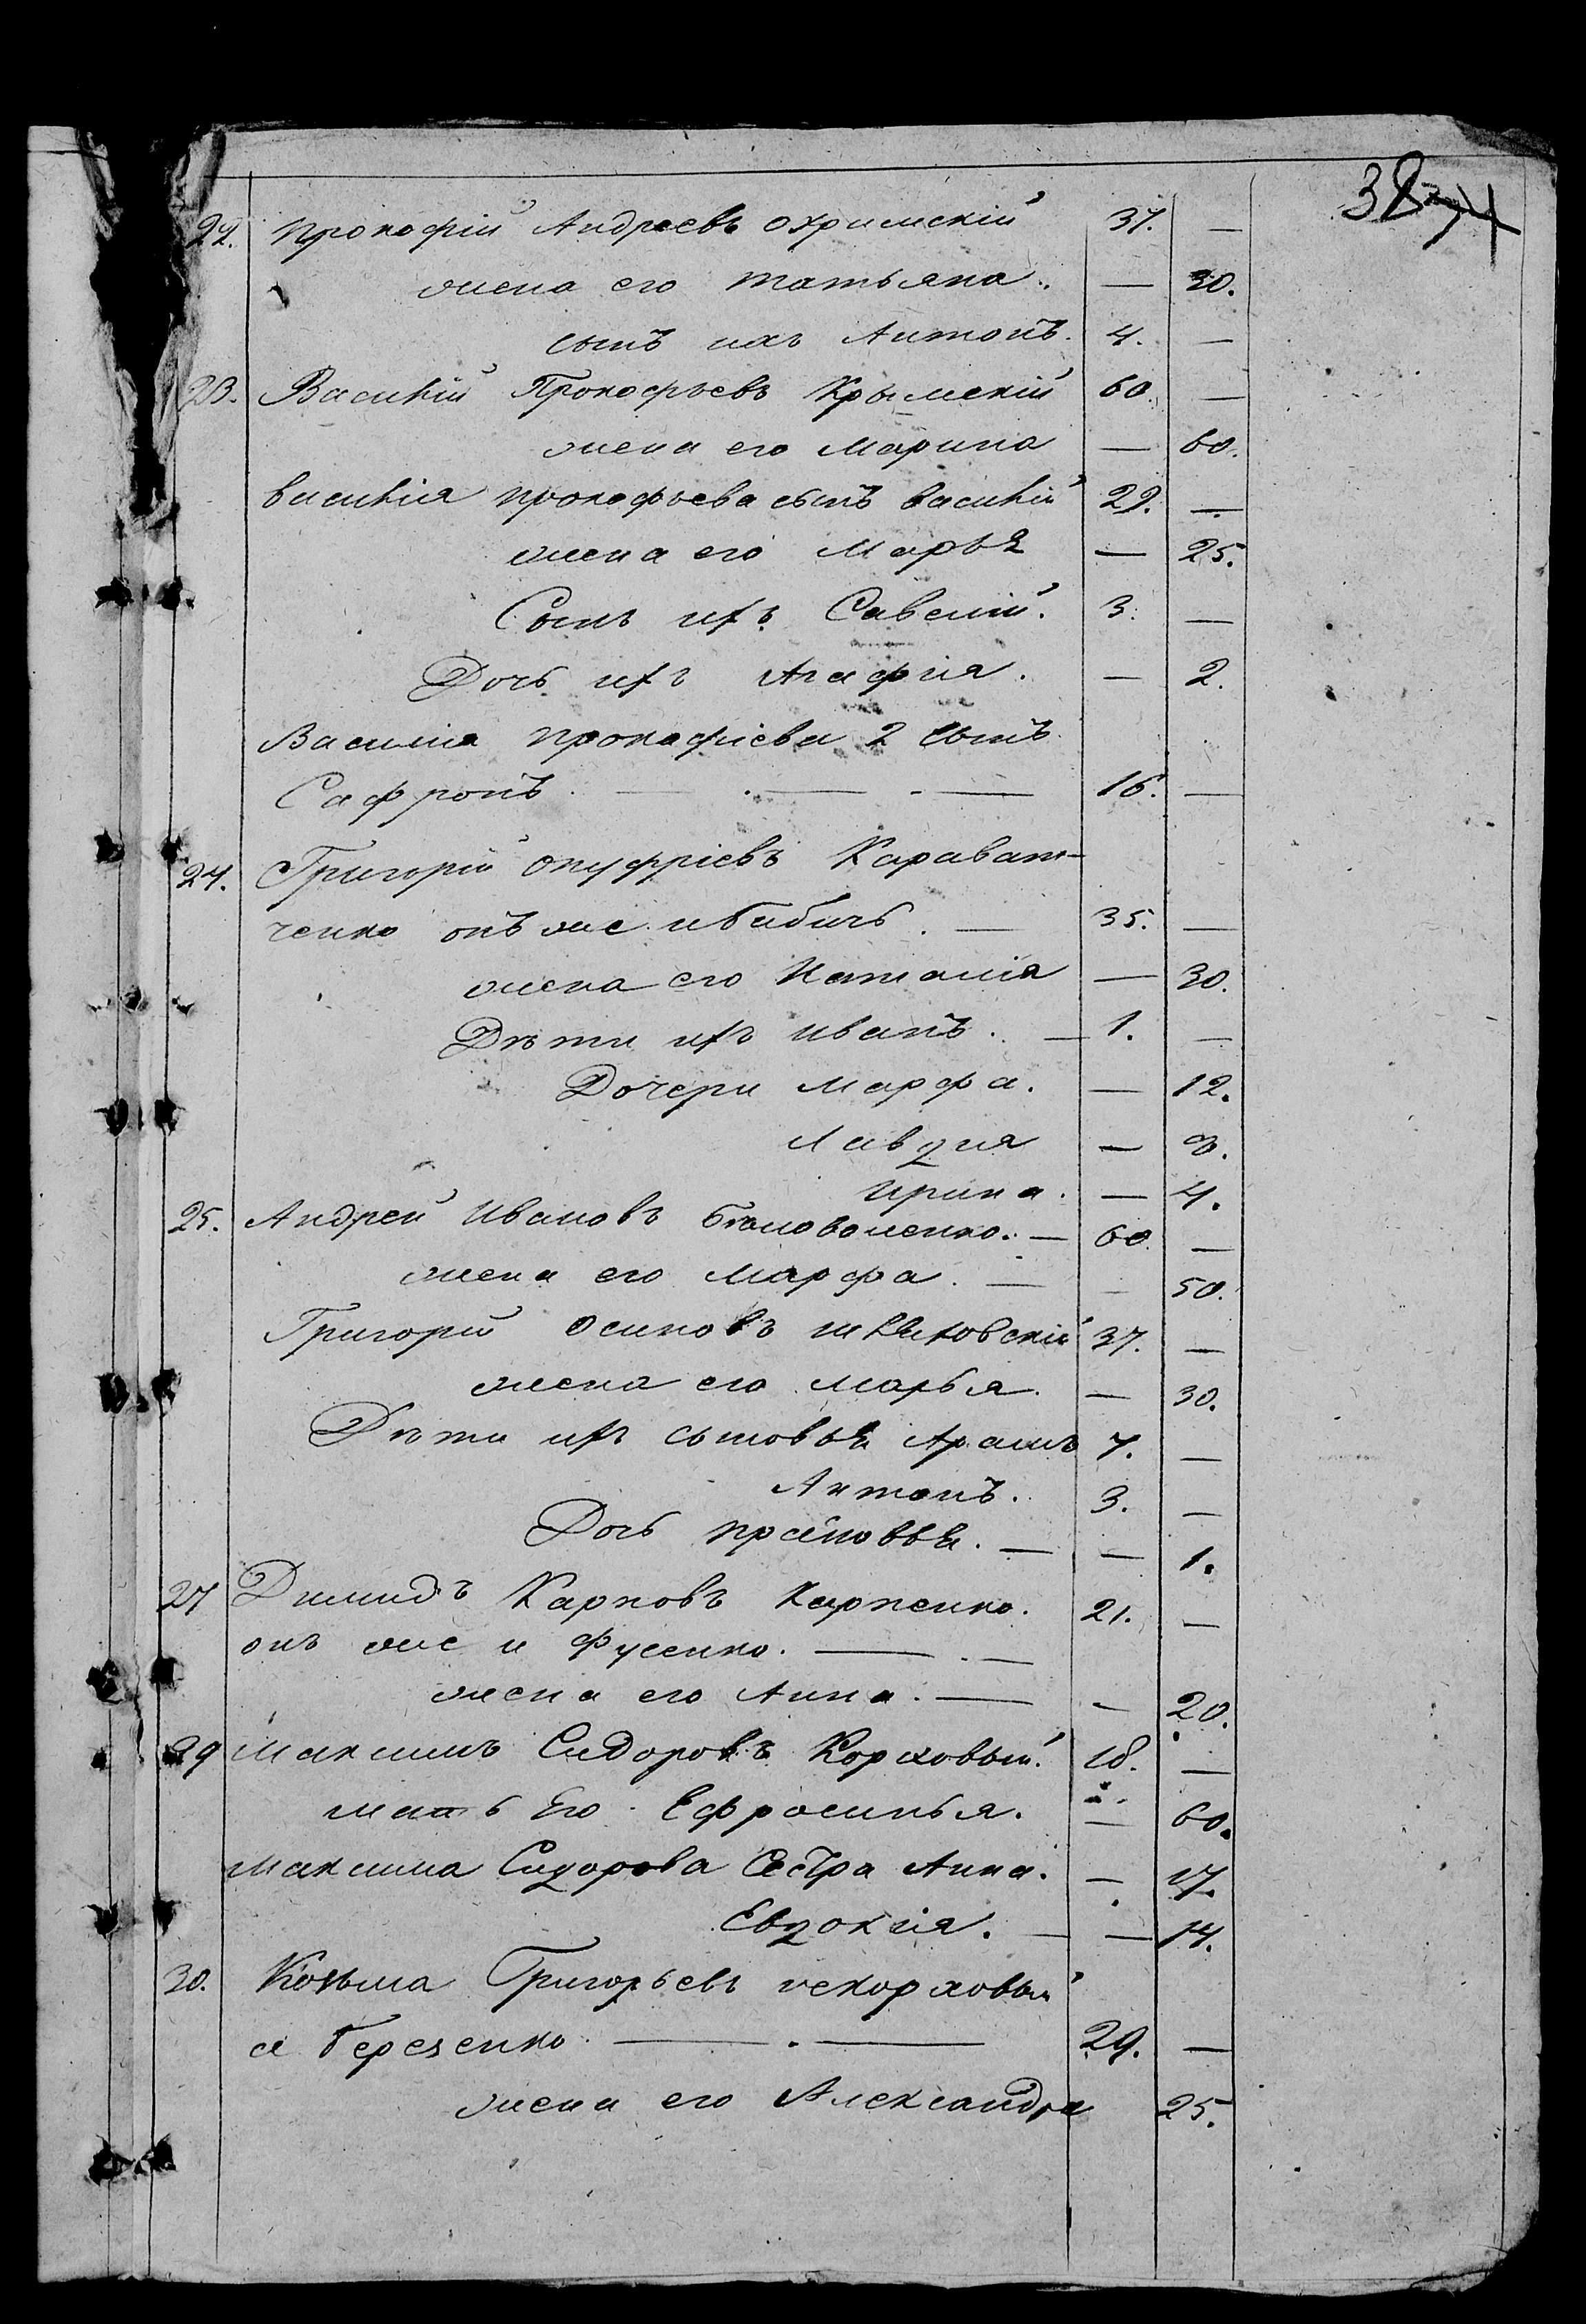 38 34
22. Прокофій Андреевъ Охримскій 37. —
жена его Татьяна. — 30.
сынъ ихъ Антонъ. 4. —
23. Василій Прокофьевъ Крымскій 60. —
жена его Марина — 60.
Василія Прокофьева сынъ Василій 29. —
жена его Марья — 25.
Сынъ ихъ Савелій. 3. —
Дочь ихъ Агафія. — 2.
Василія Прокофіева 2 сынъ
Сафронъ. — . — . — 16. —
24. Григорій Онуфріевъ Карават-
ченко онъ же и Бабичъ. — 35. —
жена его Наталія — 30.
Дѣти ихъ Иванъ. — 1. —
Дочери Марфа. — 12.
Явдуия — 9.
Ирина. — 4.
25. Андрей Ивановъ — 60. —
жена его Марфа. — — 50.
Григорій Осиповъ 37. —
жена его Марья. — 30.
Дѣти ихъ сыновья 7. —
Антонъ. 3. —
Дочь — — 1.
27 Карповъ Карпенко. 21. —
онъ же и Фусенко. — . —
жена его Анна. — — 20.
29 Максимъ Сидоровъ Корховый. 18. —
мать Его Ефросинья. — 60.
Максима Сидорова Сестра Анна. — 17.
Евдокія. — — 14.
30. Козьма Григорьевъ некорховый
а Березенко. — . — 29. —
жена его Александра 25.